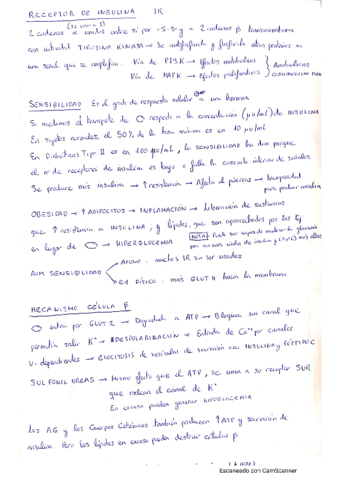 RECEPTOR DE INSULINA IR
2 cadenas α unidas entre sí por -S-S- y 2 cadenas β transmembrana
con actividad TIROSINA KINASA → Se autofosforila y fosforila otras proteínas en
una señal que se amplifica. Vía de PI3K → Efectos metabólicos
Vía de MAPK → Efectos proliferativos
SENSIBILIDAD Es el grado de respuesta celular a una hormona
Si medimos el transporte de respecto a la concentración (μu/ml) de INSULINA
En sujetos normales, el 50% de la tasa máxima es en 10 μu/ml
En Diabéticos Tipo II es en 100 μu/ml, la SENSIBILIDAD ha porque
el nº de receptores de insulina es bajo o falla la cascada interna de señales
Se produce más insulina → ↑ resistencia → Afecta al páncreas → Incapacidad
para producir insulina
OBESIDAD → ↑ ADIPOCITOS → INFLAMACIÓN → Liberación de sustancias
que ↑ resistencia a INSULINA, y lípidos, que son aprovechados por las
en lugar de → HIPERGLUCEMIA
NOTA:
AUM SENSIBILIDAD
Ayuno: muchos IR sin ser usados
Ej FÍSICO: más GLUT4 hacia la membrana
MECANISMO CÉLULA β
entra por GLUT2 → Degradada a ATP → Bloquea un canal que
permitía salir K⁺ → DESPOLARIZACIÓN → Entrada de Ca²⁺ por canales
V-dependientes → EXOCITOSIS de vesículas de secreción con INSULINA y PÉPTIDO C
SULFONILUREAS → Mismo efecto que el ATP, se unen a su receptor SUR
que rodean el canal de K⁺
En exceso pueden generar HIPOGLUCEMIA
Los AG y los Cuerpos Cetónicos también producen ↑ATP y secreción de
insulina. Pero los lípidos en exceso pueden destruir células β
Escaneado con CamScanner